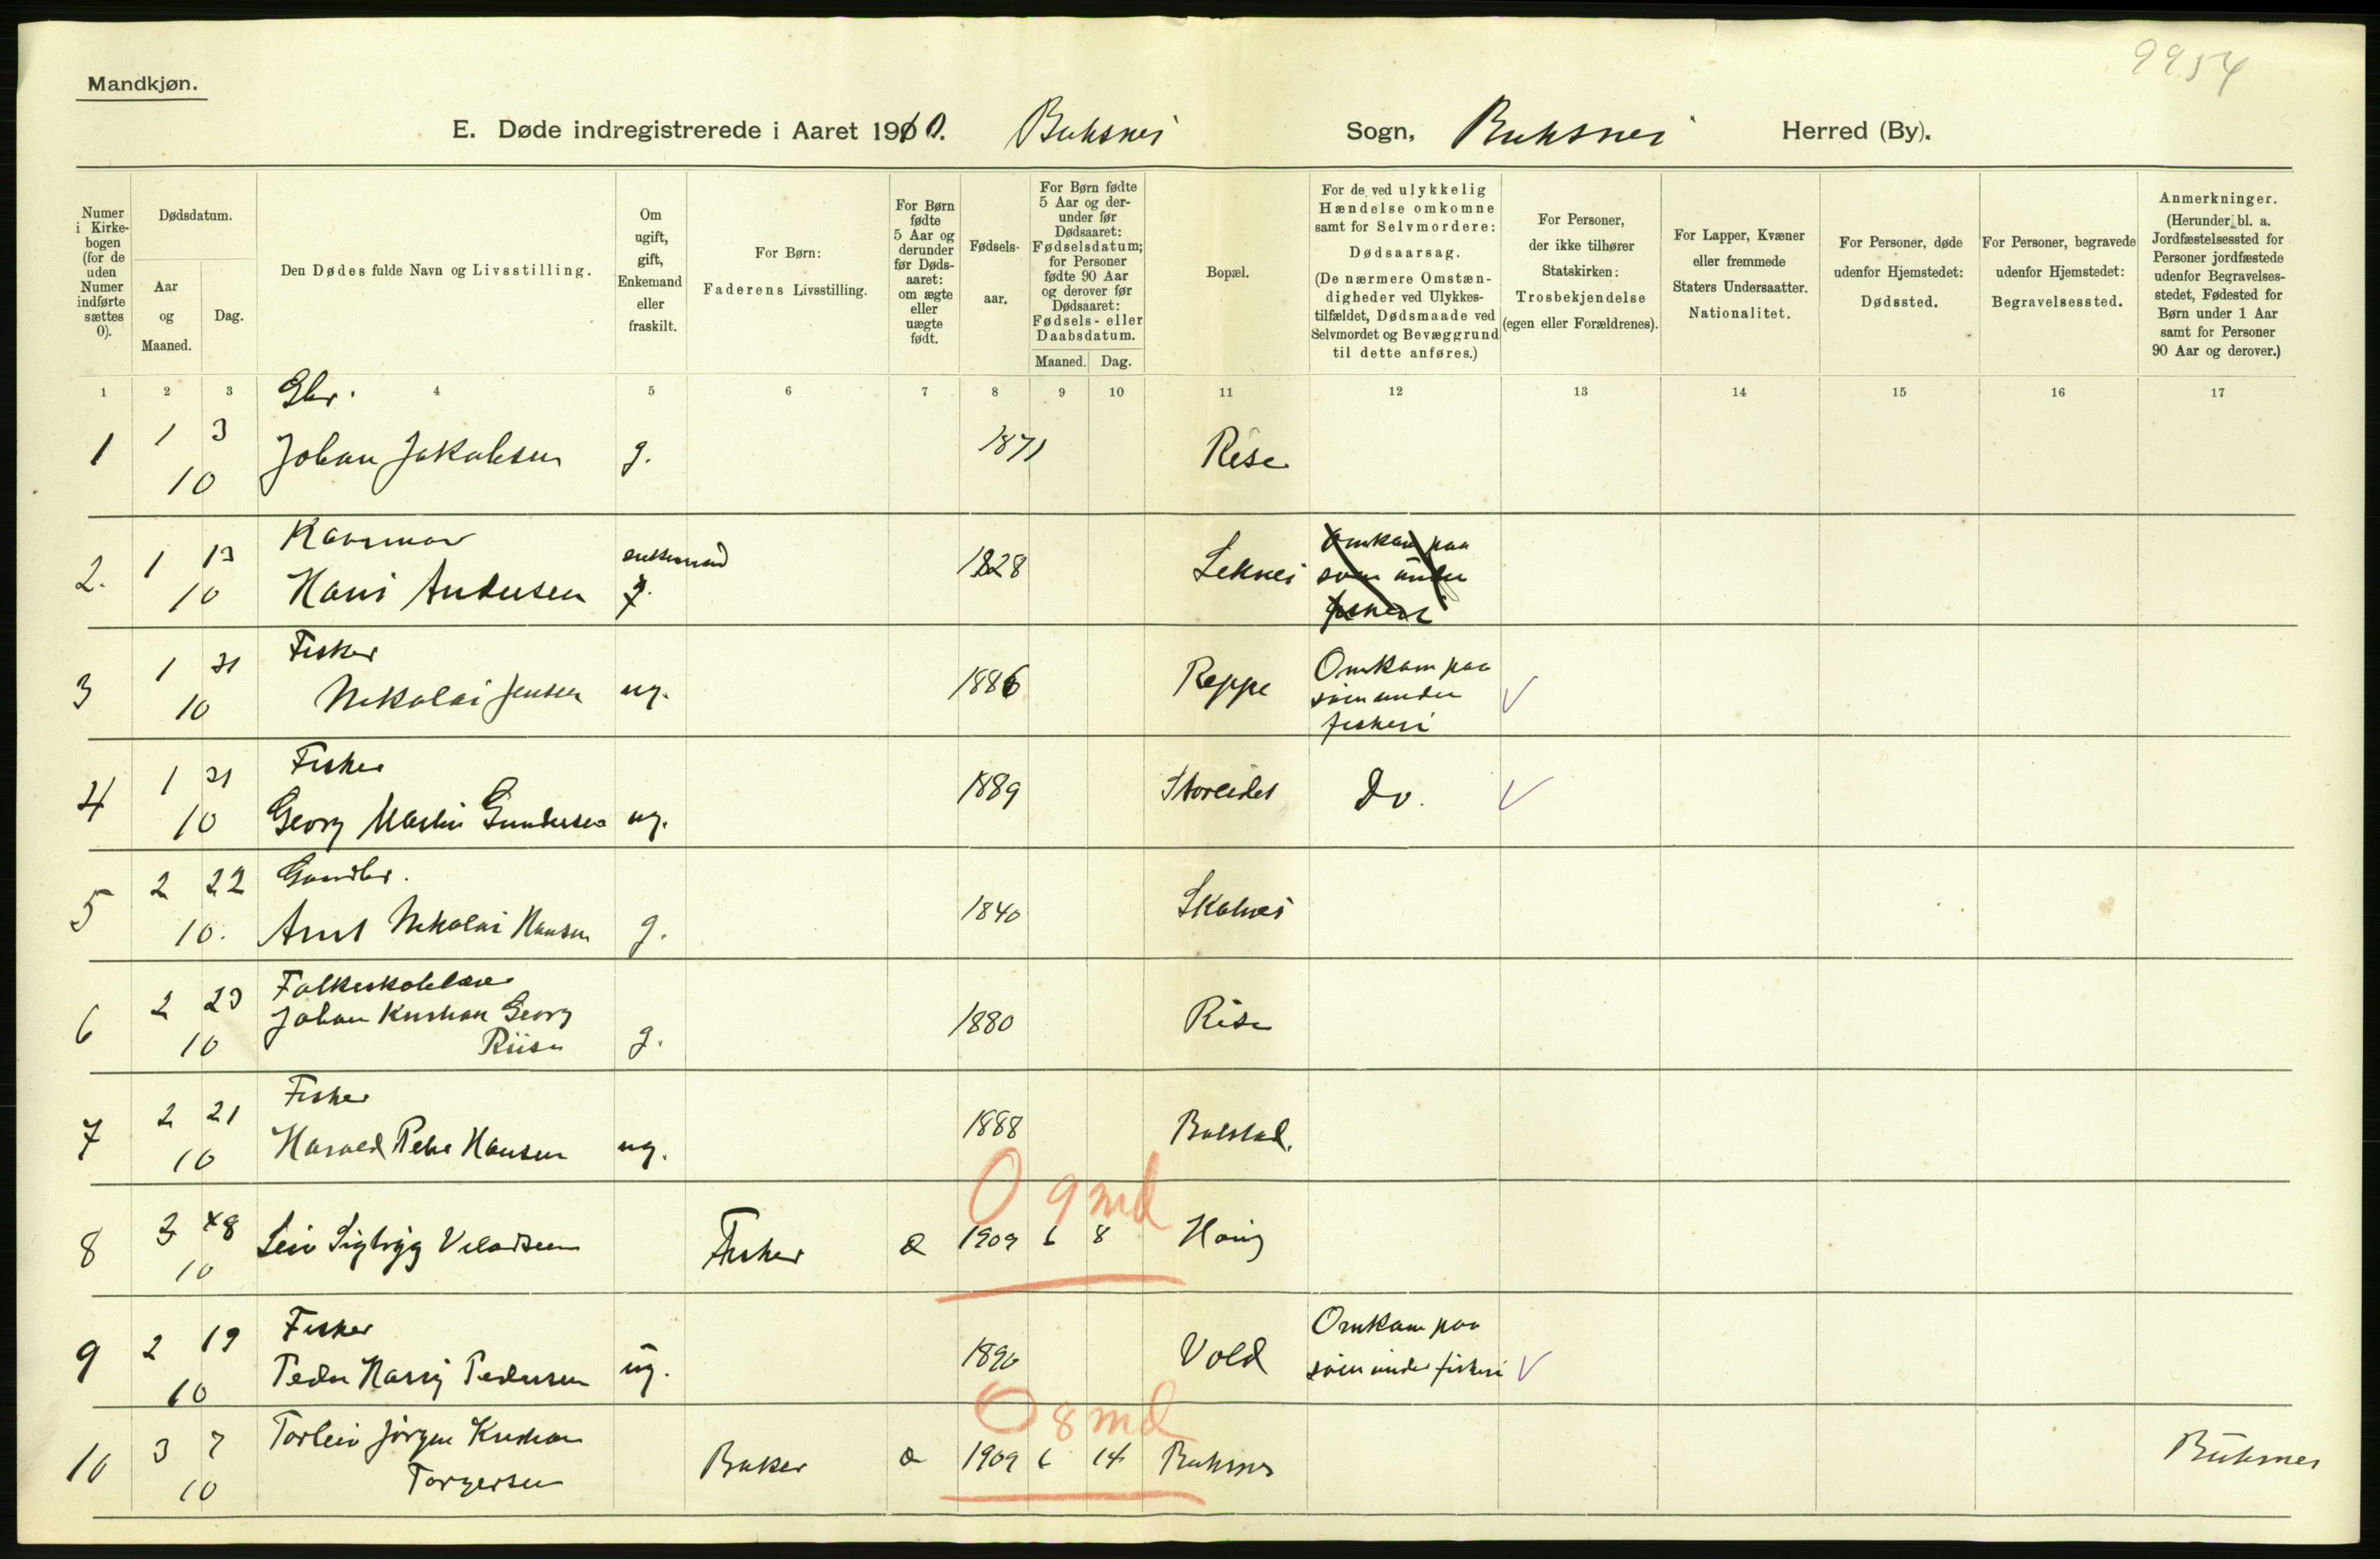 9954
Mandkjøn.
E. Døde indregistrerede i Aaret 1910. Buksnes Sogn, Buksnes Herred (By).
Numer i Kirkebogen (for de uden Numer indførte sættes 0).
Dødsdatum.
Aar og Maaned.
Dag.
Den Dødes fulde Navn og Livsstilling.
Om ugift, gift, Enkemand eller fraskilt.
For Børn: Faderens Livsstilling.
For Børn fødte 5 Aar og derunder før Dødsaaret: om ægte eller uægte født.
Fødselsaar.
For Børn fødte 5 Aar og derunder før Dødsaaret: Fødselsdatum; for Personer fødte 90 Aar og derover før Dødsaaret: Fødsels- eller Daabsdatum.
Maaned. Dag.
Bopæl.
For de ved ulykkelig Hændelse omkomne samt for Selvmordere: Dødsaarsag. (De nærmere Omstændigheder ved Ulykkestilfældet, Dødsmaade ved Selvmordet og Bevæggrund til dette anføres.)
For Personer, der ikke tilhører Statskirken: Trosbekjendelse (egen eller Forældrenes).
For Lapper, Kvæner eller fremmede Staters Undersaatter. Nationalitet.
For Personer, døde udenfor Hjemstedet: Dødssted.
For Personer, begravede udenfor Hjemstedet: Begravelsessted.
Anmerkninger. (Herunder bl. a. Jordfæstelsessted for Personer jordfæstede udenfor Begravelsesstedet, Fødested for Børn under 1 Aar samt for Personer 90 Aar og derover.)
1 2 3 4 5 6 7 8 9 10 11 12 13 14 15 16 17
Gbr.
1 1 3 Johan Jakobsen g. 1871 Rise
10
Kaarmand
2. 1 13 enkemand 1828 Leknes Omkom paa
10 Hans Andersen g. søen under
fiskeri
Fisker
3 1 31 1886 Reppe Omkom paa
10 Nikolai Jensen ug. søen under
fiskeri
Fisker
4 1 31 1889 Storeidet Do.
10 Georg Martin Gundersen ug.
Gaardbr.
5 2 22 1840
10. Arnt Nikolai Hansen g.
Folkeskolelærer
6 2 23 Johan Kristian Georg 1880 Rise
10 Riise g.
Fisker
7 2 21 1888 Balstad.
10 Harald Peder Hansen ug.
0 9 md
8 3 8 Leiv Sigtryg Fisker 1909 6 8 Haug
10
Fisker
9 2 19 1890 Vold Omkom paa
10 Peder Harry Pedersen ug. søen under fiskeri
0 8 md
10 3 7 Torleiv Jørgen Kristian Baker 1909 6 14 Buksnes Buksnes
10 Torgersen